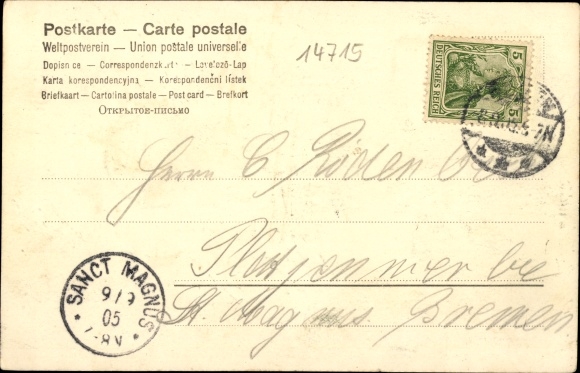 Postkarte — Carte postale
Weltpostverein — Union postale universelle
Dopisnice — Correspondenzkarte — Levelező-Lap
Karta korespondencyjna — Korespondenční lístek
Briefkaart — Cartolina postale — Post card — Brefkort
Открытое-письмо
14715
5 5
DEUTSCHES REICH
7N
Herrn C
bei
St. Magnus Bremen
SANCT MAGNUS
9/9
05
7-8N